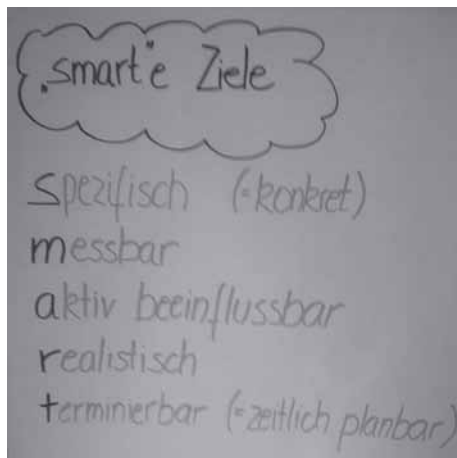 „smart"e Ziele
spezifisch (=konkret)
messbar
aktiv beeinflussbar
realistisch
terminierbar (=zeitlich planbar)